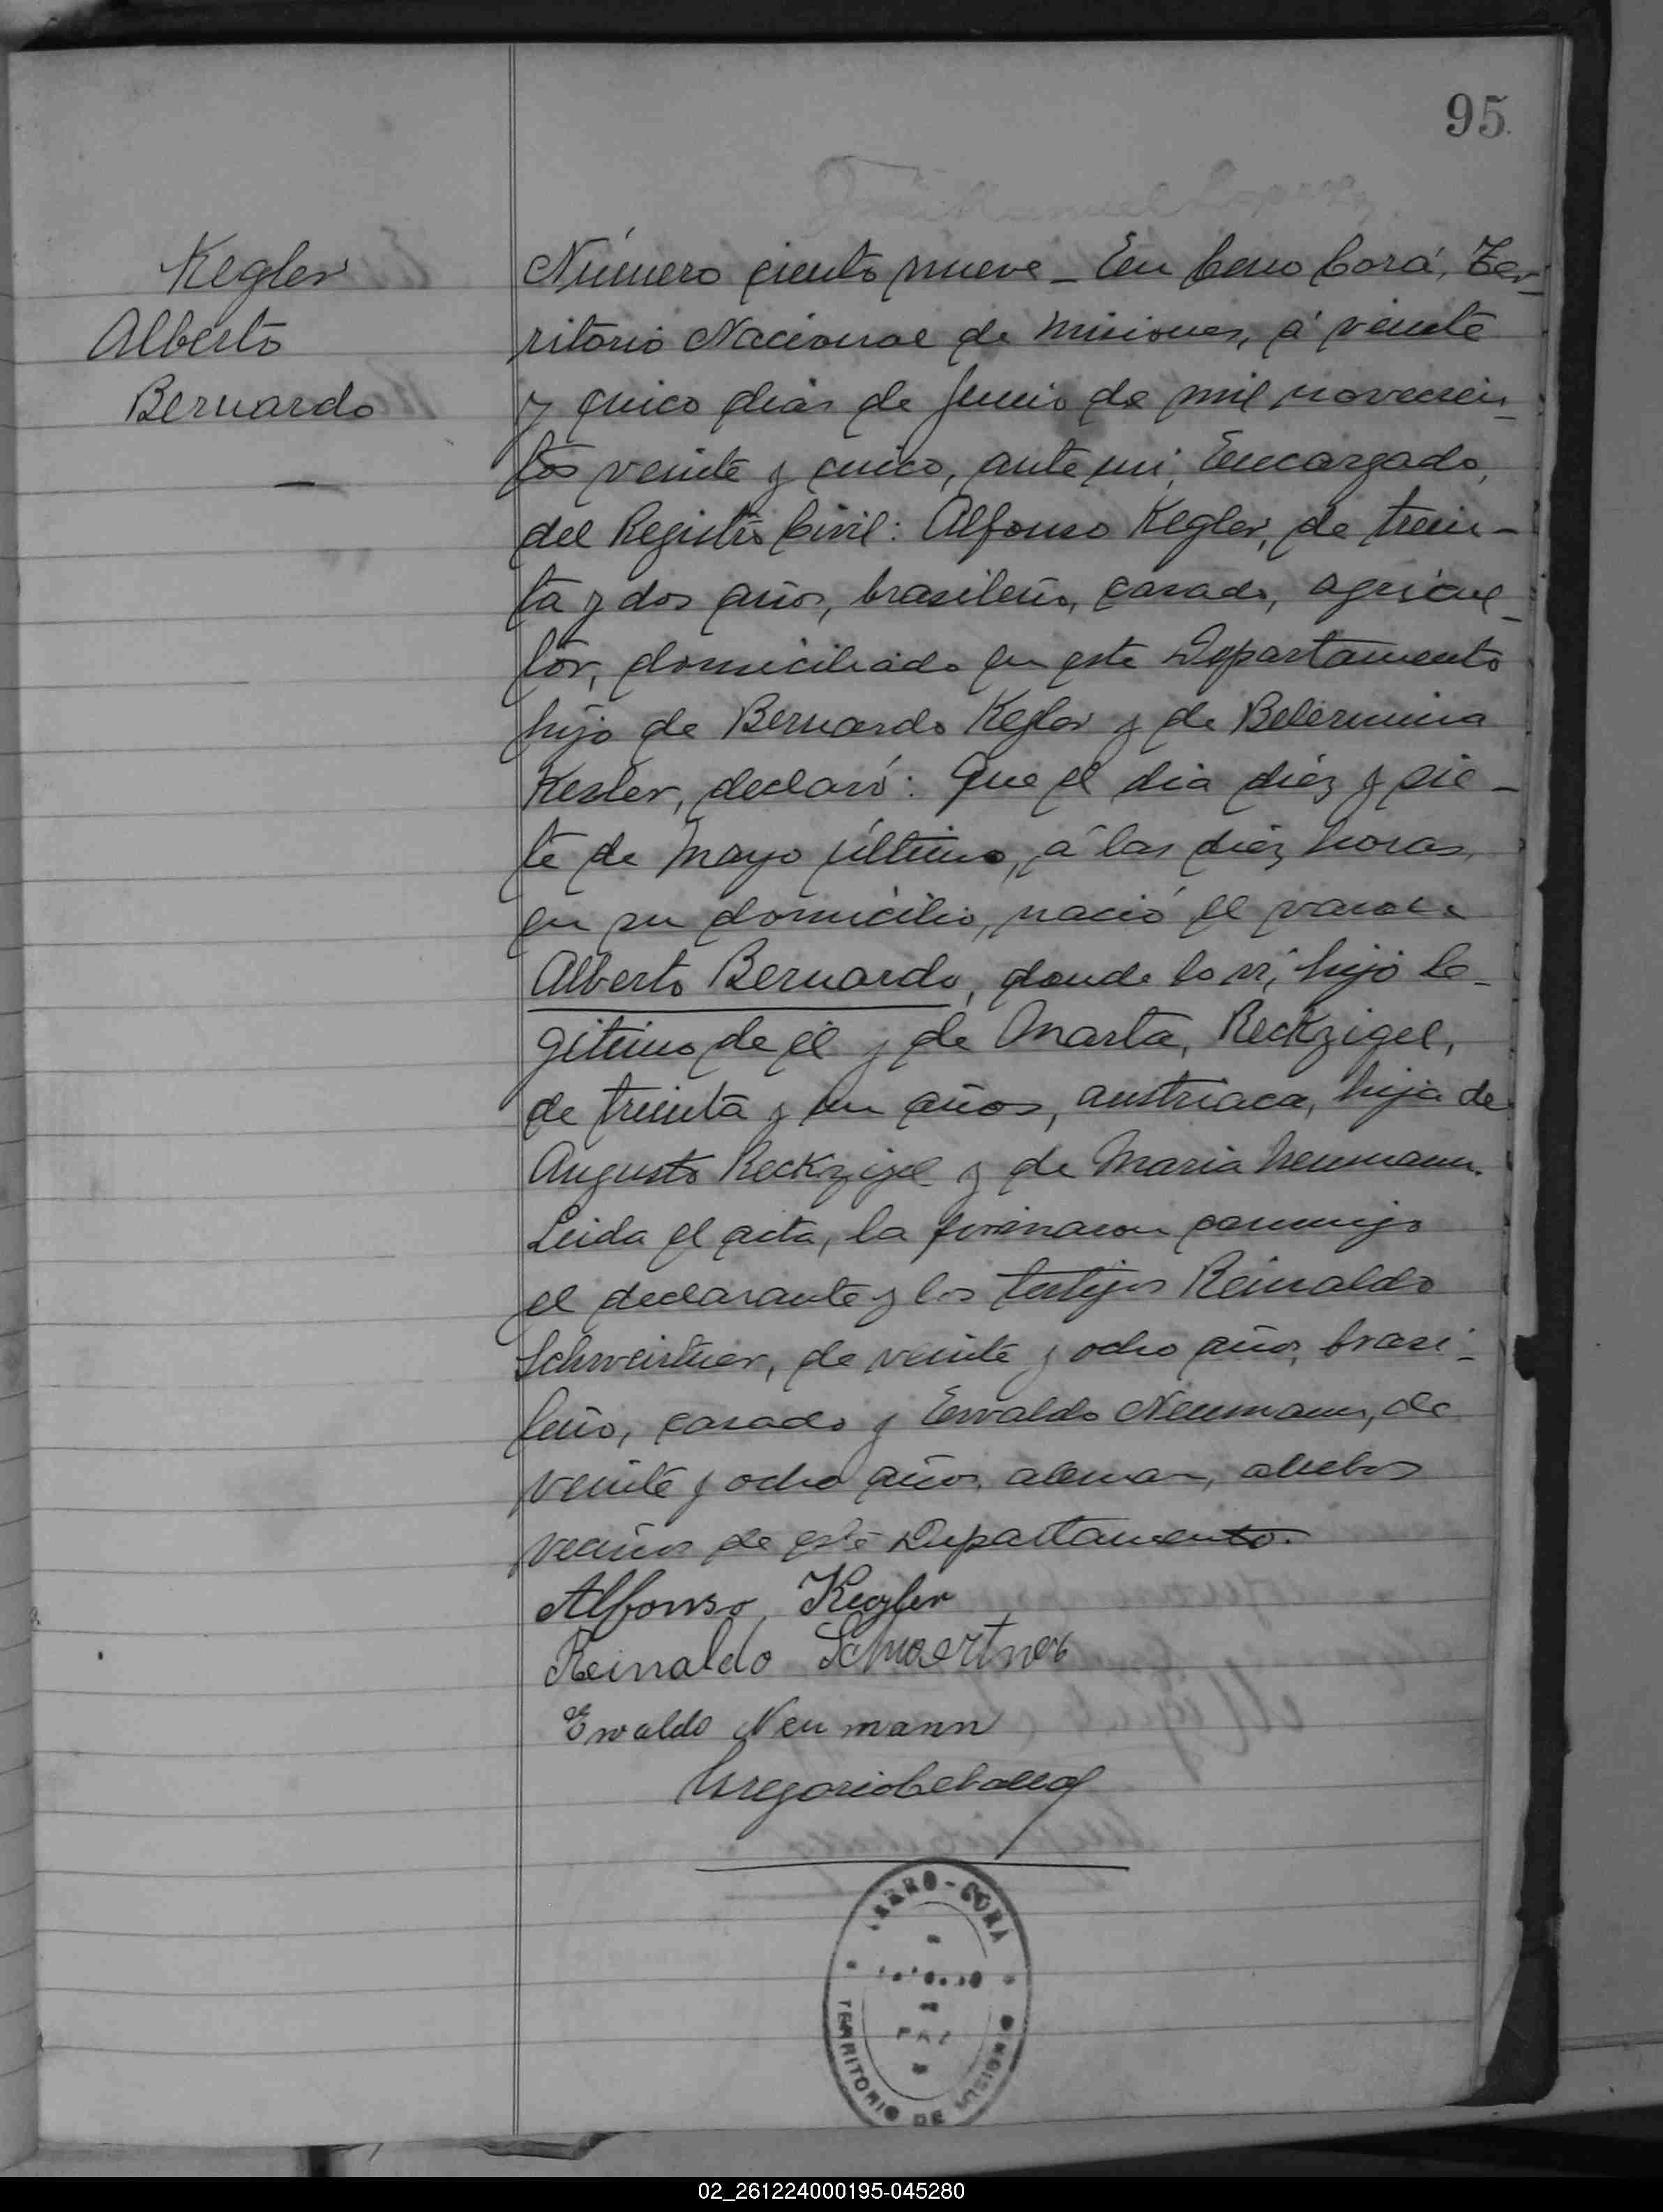 95
Kegler
Alberto
Bernardo
Número ciento nueve - En Cerro Corá, Ter-
ritorio Nacional de Misiones, á veinte
y cinco dias de Junio de mil novecien-
tos veinte y cinco, ante mi, Encargado,
del Registro Civil: Alfonso Kegler, de trein-
ta y dos años, brasileño, casado, agricul-
tor, domiciliado en este Departamento
hijo de Bernardo Kegler y de Belermina
Kesler, declaró: Que el dia diéz y sie-
te de Mayo último, á las diéz horas,
en su domicilio, nació el varon
Alberto Bernardo, donde lo ví, hijo le-
gitimo de él y de Marta, Reckzigel,
de treinta y un años, austriaca, hija de
Augusto Reckzigel y de Maria Neumann.
Leida el acta, la firmaron conmigo
el declarante y los testigos Reinaldo
Schweirtner, de veinte y ocho años, brasi-
leño, casado y Ervaldo Neumann, de
veinte y ocho años, aleman, ambos
vecinos de este Departamento.
Alfonso Kegler
Reinaldo Schwertner
Ervaldo Neumann
Gregorio Ceballos
CERRO-CORÁ
PAZ
TERRITORIO DE MISIONES
02_261224000195-045280